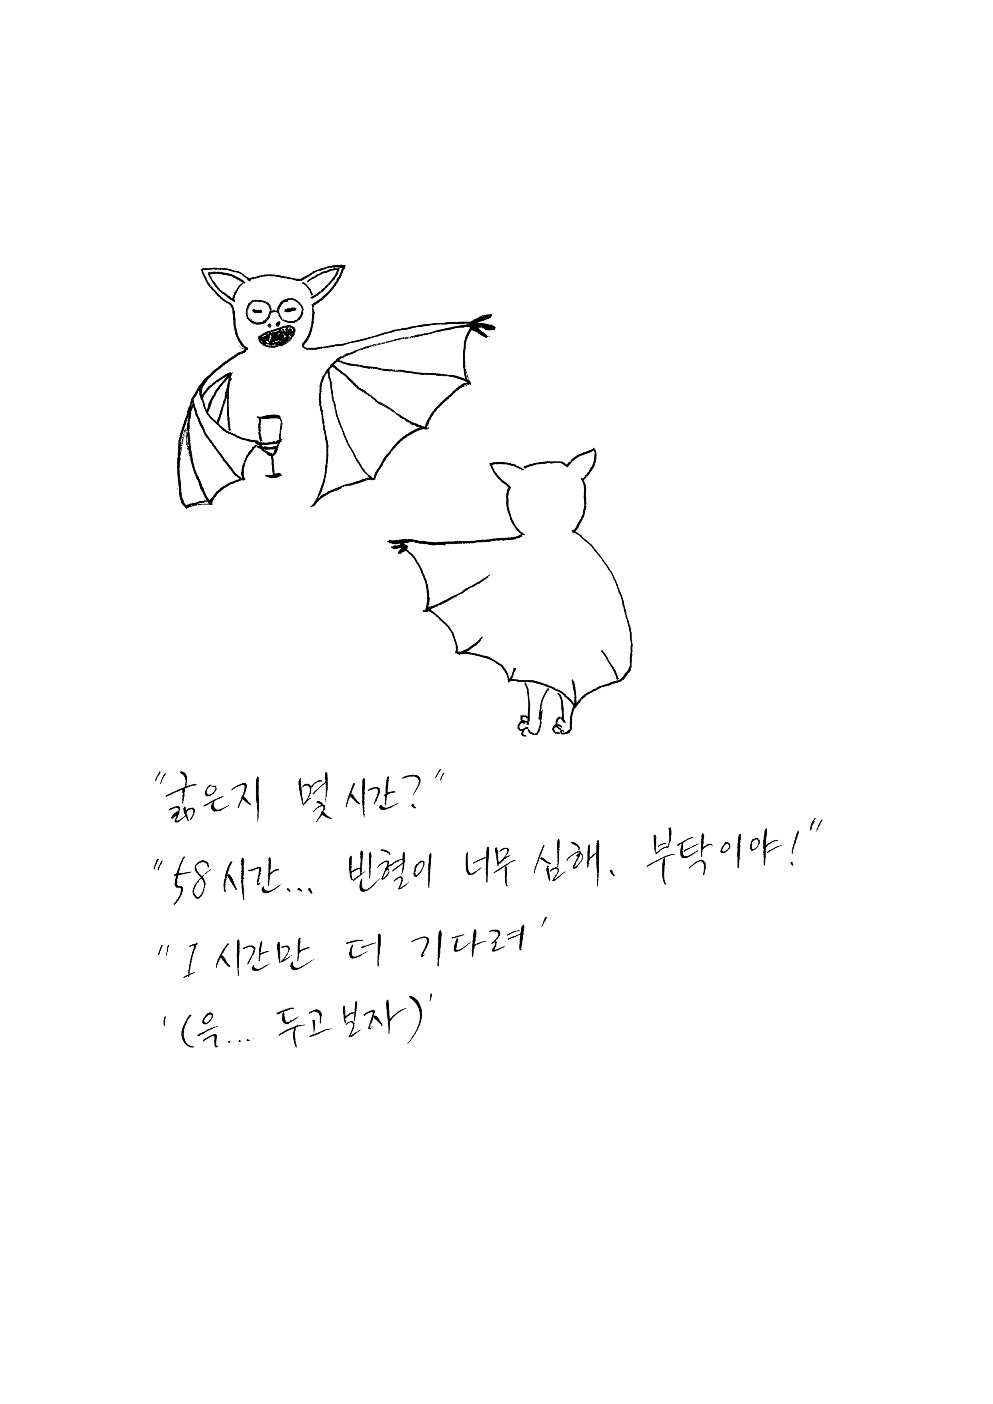 "굶은지 몇 시간?"
"58시간... 빈혈이 너무 심해. 부탁이야!"
"1시간만 더 기다려'
'(윽... 두고보자)'